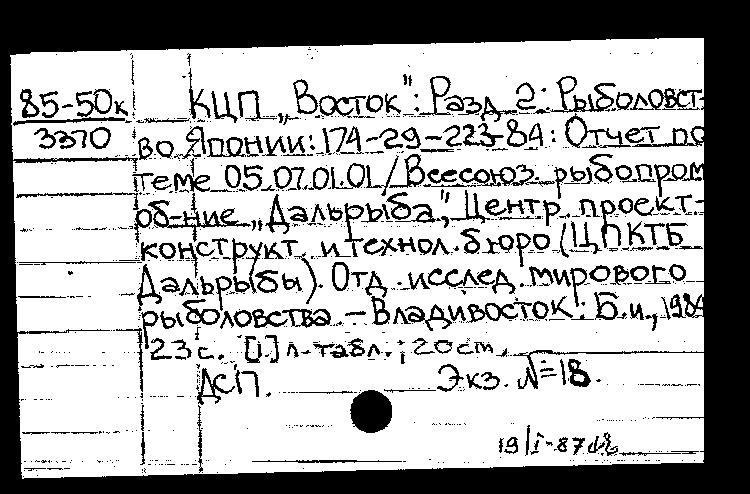 85-50к
3370
КЦП „Восток": Разд. 2: Рыболовст-
во Японии: 174-29-223-84: Отчет по
теме 05.07.01.01 / Всесоюз. рыбопром.
об-ние „Дальрыба", Центр. проект.-
конструкт. и технол. бюро (ЦПКТБ
Дальрыбы). Отд. исслед. мирового
рыболовства. - Владивосток: Б.и., 1984
23 с. [1] л. табл.; 20 см.
ДСП. Экз. №=18.
19/I-87